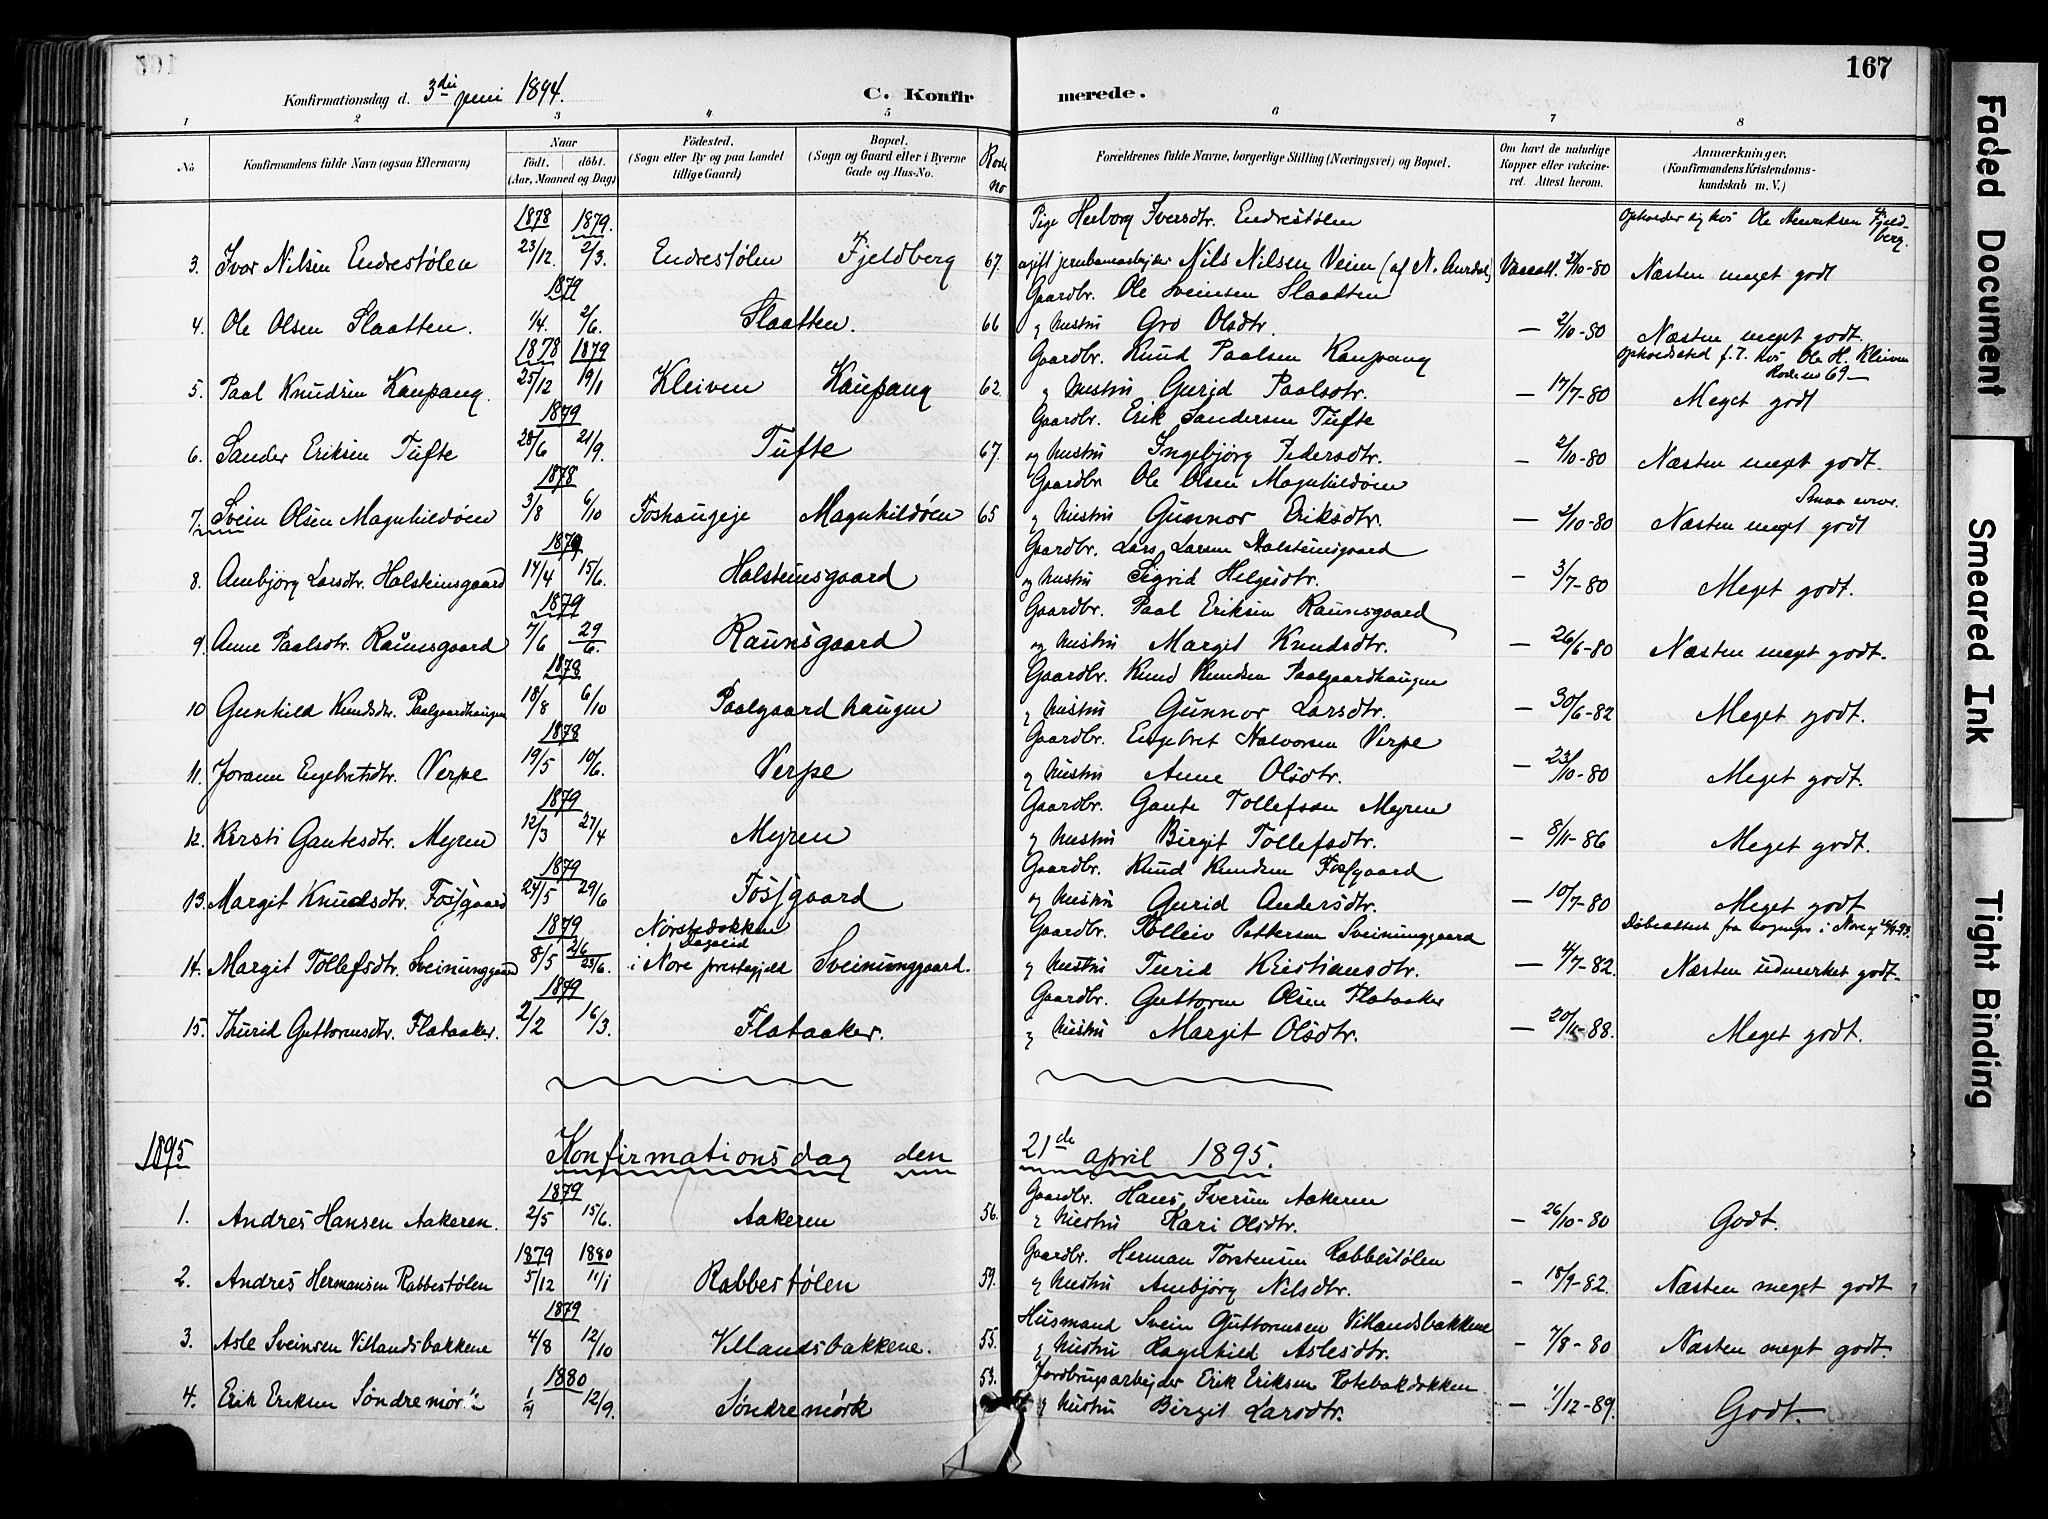 167
Konfirmationsdag d. 3die juni 1894. C. Konfirmerede.
1 2 3 4 5 6 7 8
No. Konfirmandens fulde Navn (ogsaa Efternavn) Naar født. døbt. (Aar, Maaned og Dag) Födested. (Sogn eller By og paa Landet tillige Gaard) Bopæl. (Sogn og Gaard eller i Byerne Gade og Hus-No. Rode no Forældrenes fulde Navne, borgerlige Stilling (Næringsvei) og Bopæl. Om havt de naturlige Kopper eller vaccineret. Attest herom. Anmærkninger. (Konfirmandens Kristendomskundskab m. V.)
1878 1879. Pige Herborg Iversdtr. Endrestølen Opholder sig hos Ole Henriksen Fjeldberg.
3. Ivar Nilsen Endrestølen 23/12. 2/3. Endrestølen Fjeldberg 67. ugift jernbanearbejder Nils Nilsen Veim (af N. Aurdal) Vaccatt. 2/10-80 Næsten meget godt
1879 Gaardbr. Ole Sveinsen Slaatten
4. Ole Olsen Slaatten. 1/4. 2/6. Slaatten. 66 og Hustru Gro Olsdtr. — 2/10-80 Næsten meget godt.
1878 1879 Gaardbr. Knud Paalsen Kaupang Opholdssted f.T. hos Ole H. Kleiven Rode no 69—
5. Paal Knudsen Kaupang. 25/12 19/1 Kleiven Kaupang 62. og Hustru Gurid Paalsdtr. — 17/7-80 Meget godt
1879 Gaardbr. Erik Sandersen Tufte
6. Sander Eriksen Tufte 28/6 21/9. Tufte 67. og Hustru Ingebjørg Pedersdtr. — 2/10-80 Næsten meget godt.
1878 Gaardbr. Ole Olsen Magnhildøen
7. Svein Olsen Magnhildøen 3/8 6/10 Foshaugeje Magnhildøen 65 og Hustru Gunnor Eriksdtr. — 2/10-80 Næsten meget godt
1879 Gaardbr. Lars Larsen Holsteinsgaard
8. Ambjørg Larsdtr. Holsteinsgaard 17/4 15/6. Holsteinsgaard og Hustru Sigrid Helgesdtr. — 3/7-80 Meget godt.
1879 Gaardbr. Paal Eriksen Raunsgaard
9. Anne Paalsdtr. Raunsgaard 7/6 29/6. Raunsgaard og Hustru Margit Knudsdtr. — 26/6-80 Næsten meget godt.
1878 Gaardbr. Knud Knudsen Paalgaardhaugen
10 Gunhild Knudsdtr. Paalgaardhaugen 18/8 6/10 Paalgaardhaugen og Hustru Gunnor Larsdtr. — 30/6-82 Meget godt.
1878 Gaardbr. Engebret Halvorsen Verpe
11. Joranne Engebretsdtr. Verpe 19/5 10/6. Verpe og Hustru Anne Olsdtr. — 23/10-80 Meget godt.
1879 Gaardbr. Gaute Tollefsen Myren
12. Kirsti Gautesdtr. Myren 12/3 27/4 Myren og Hustru Birgit Tollefsdtr. — 8/11-86 Meget godt.
1879 Gaardbr. Knud Knudsen Fossgaard
13. Margit Knudsdtr. Fossgaard 24/5 29/6 Fossgaard og Hustru Gurid Andersdtr. — 10/7-80 Meget godt
1879 Norstedokken Dagalid Gaardbr. Tolleiv Pettersen Sveinunggaard Dåbsattest fra Sognepr. i Nore
14. Margit Tollefsdtr. Sveinunggaard 8/5 2/6 23/6. i Nore præstegjeld Sveinunggaard. og Hustru Turid Kristiansdtr. — 4/7-82. Næsten udmerket godt.
1879 Gaardbr. Guttorm Olsen Flataaker
15. Thurid Guttormsdtr. Flataaker. 2/2 16/3. Flataaker. og Hustru Margit Olsdtr. — Meget godt.
1895 Konfirmationsdag den 21de april 1895.
1879 Gaardbr. Hans Iversen Aakeren
1. Andres Hansen Aakeren. 2/5 15/6. Aakeren 56. og Hustru Kari Olsdtr. — 26/10-80 Godt.
1879 1880 Gaardbr. Herman Torstensen Rabbestølen
2. Andres Hermansen Rabbestølen 5/12 11/1 Rabbestølen 59. og Hustru Ambjørg Nilsdtr. — 18/9-82. Næsten meget godt
1879 Husmand Svein Guttormsen Villandsbakkene
3. Asle Sveinsen Villandsbakkene 4/8 12/10 Villandsbakkene. 55. og Hustru Ragnhild Aslesdtr. — 7/8-80 Næsten meget godt.
1880 53. Jordbrugsarbejder Erik Eriksen Rotebakdokken
4. Erik Eriksen Søndremørk 12/9. Søndremørk og Hustru Birgit Larsdtr. — 1/12-89. Godt.
Faded Document
Smeared Ink
Tight Binding